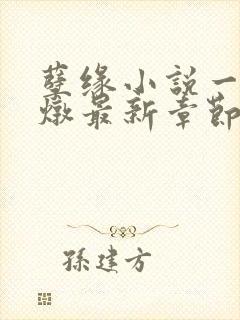 孽缘小說一
燉最新章節
孫建方